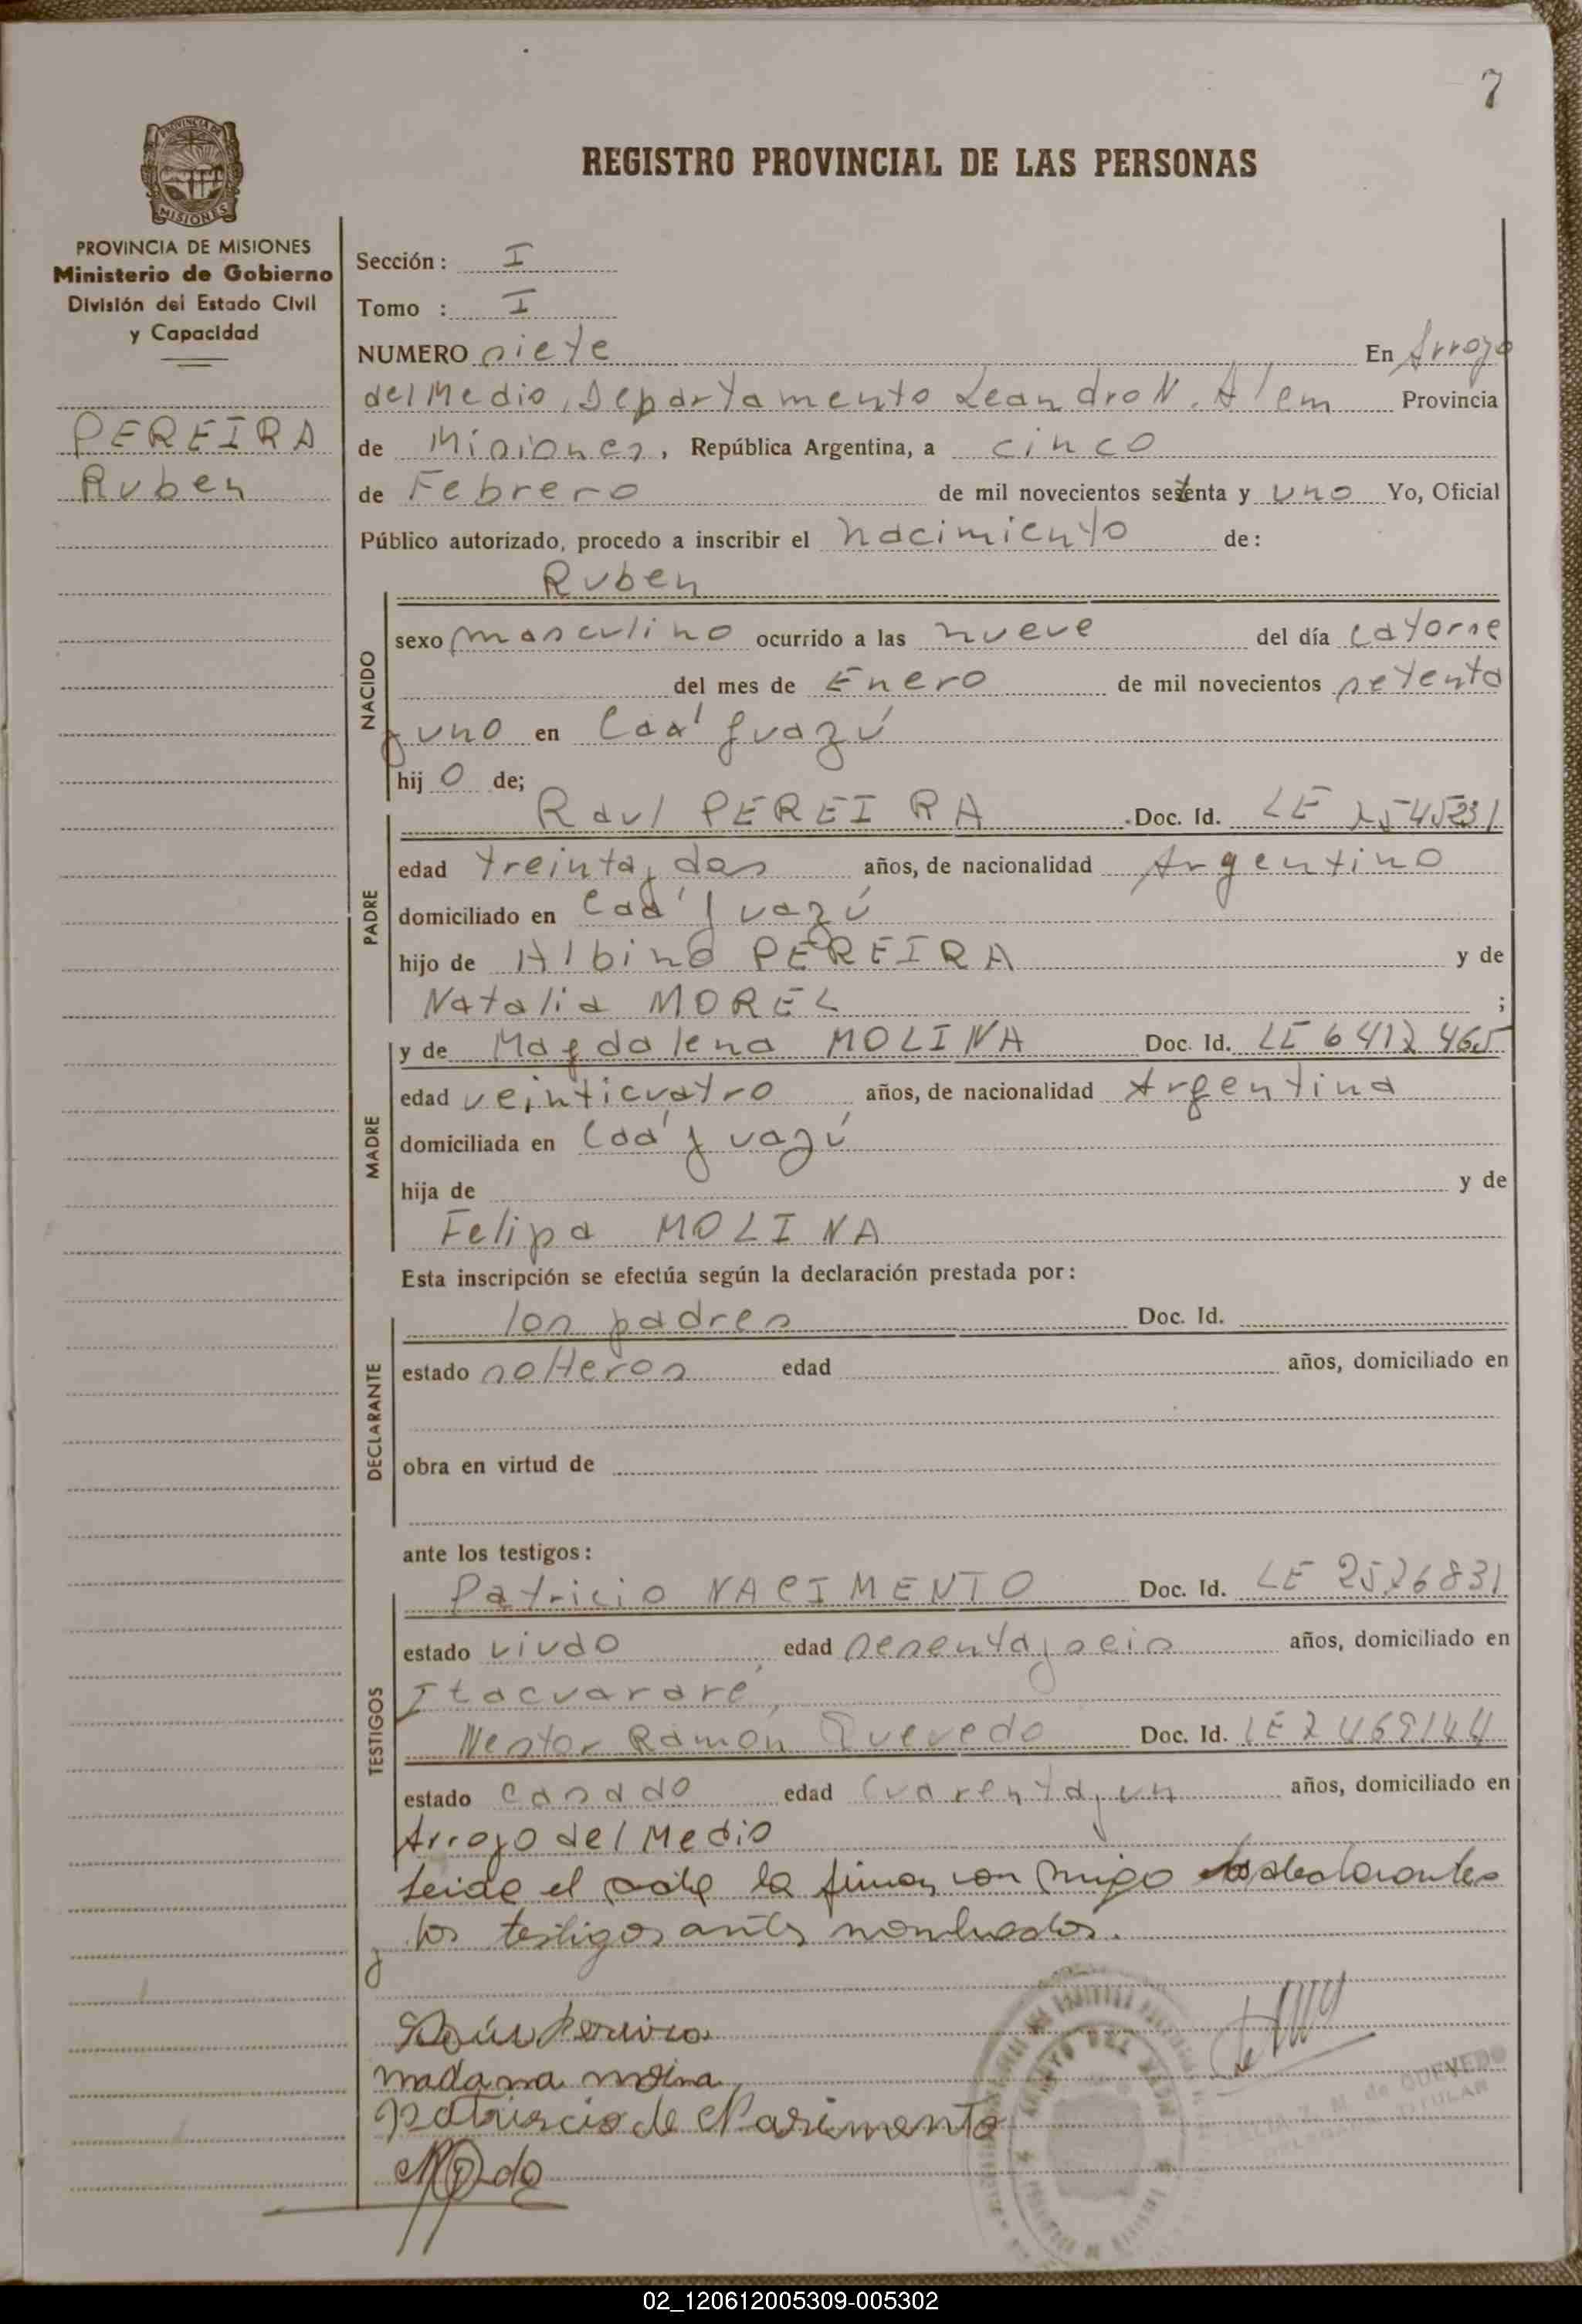 7
REGISTRO PROVINCIAL DE LAS PERSONAS
PROVINCIA DE MISIONES
PROVINCIA DE MISIONES
Ministerio de Gobierno
División del Estado Civil
y Capacidad
PEREIRA
Ruben
Sección: I
Tomo : I
NUMERO siete En Arroyo
del Medio, Departamento Leandro N. Alem Provincia
de Misiones, República Argentina, a cinco
de Febrero de mil novecientos setenta y uno Yo, Oficial
Público autorizado, procedo a inscribir el nacimiento de:
Ruben
NACIDO
sexo masculino ocurrido a las nueve del día catorse
del mes de Enero de mil novecientos setenta
y uno en Caá Guazú
hij o de;
PADRE
Raul PEREIRA Doc. Id. LE
edad treinta y dos años, de nacionalidad Argentino
domiciliado en Caá guazú
hijo de Albino PEREIRA y de
Natalia MOREL ;
MADRE
y de Magdalena MOLINA Doc. Id. LE 6412465
edad veinticuatro años, de nacionalidad Argentina
domiciliada en Caá guazú
hija de y de
Felipa MOLINA
Esta inscripción se efectúa según la declaración prestada por:
DECLARANTE
los padres Doc. Id.
estado solteros edad años, domiciliado en
obra en virtud de
ante los testigos:
TESTIGOS
Patricio NACIMENTO Doc. Id. LE 2526831
estado viudo edad sesenta y seis años, domiciliado en
Itacuararé
Nestor Ramón Quevedo Doc. Id. LE
estado casado edad cuarenta y un años, domiciliado en
Arroyo del Medio
Leida el acta la firman con migo los declarantes
y los testigos antes nombrados.
Raúl Pereira
madama molina
patriscio de Nasimento
de QUEVEDO
TITULAR
02_120612005309-005302